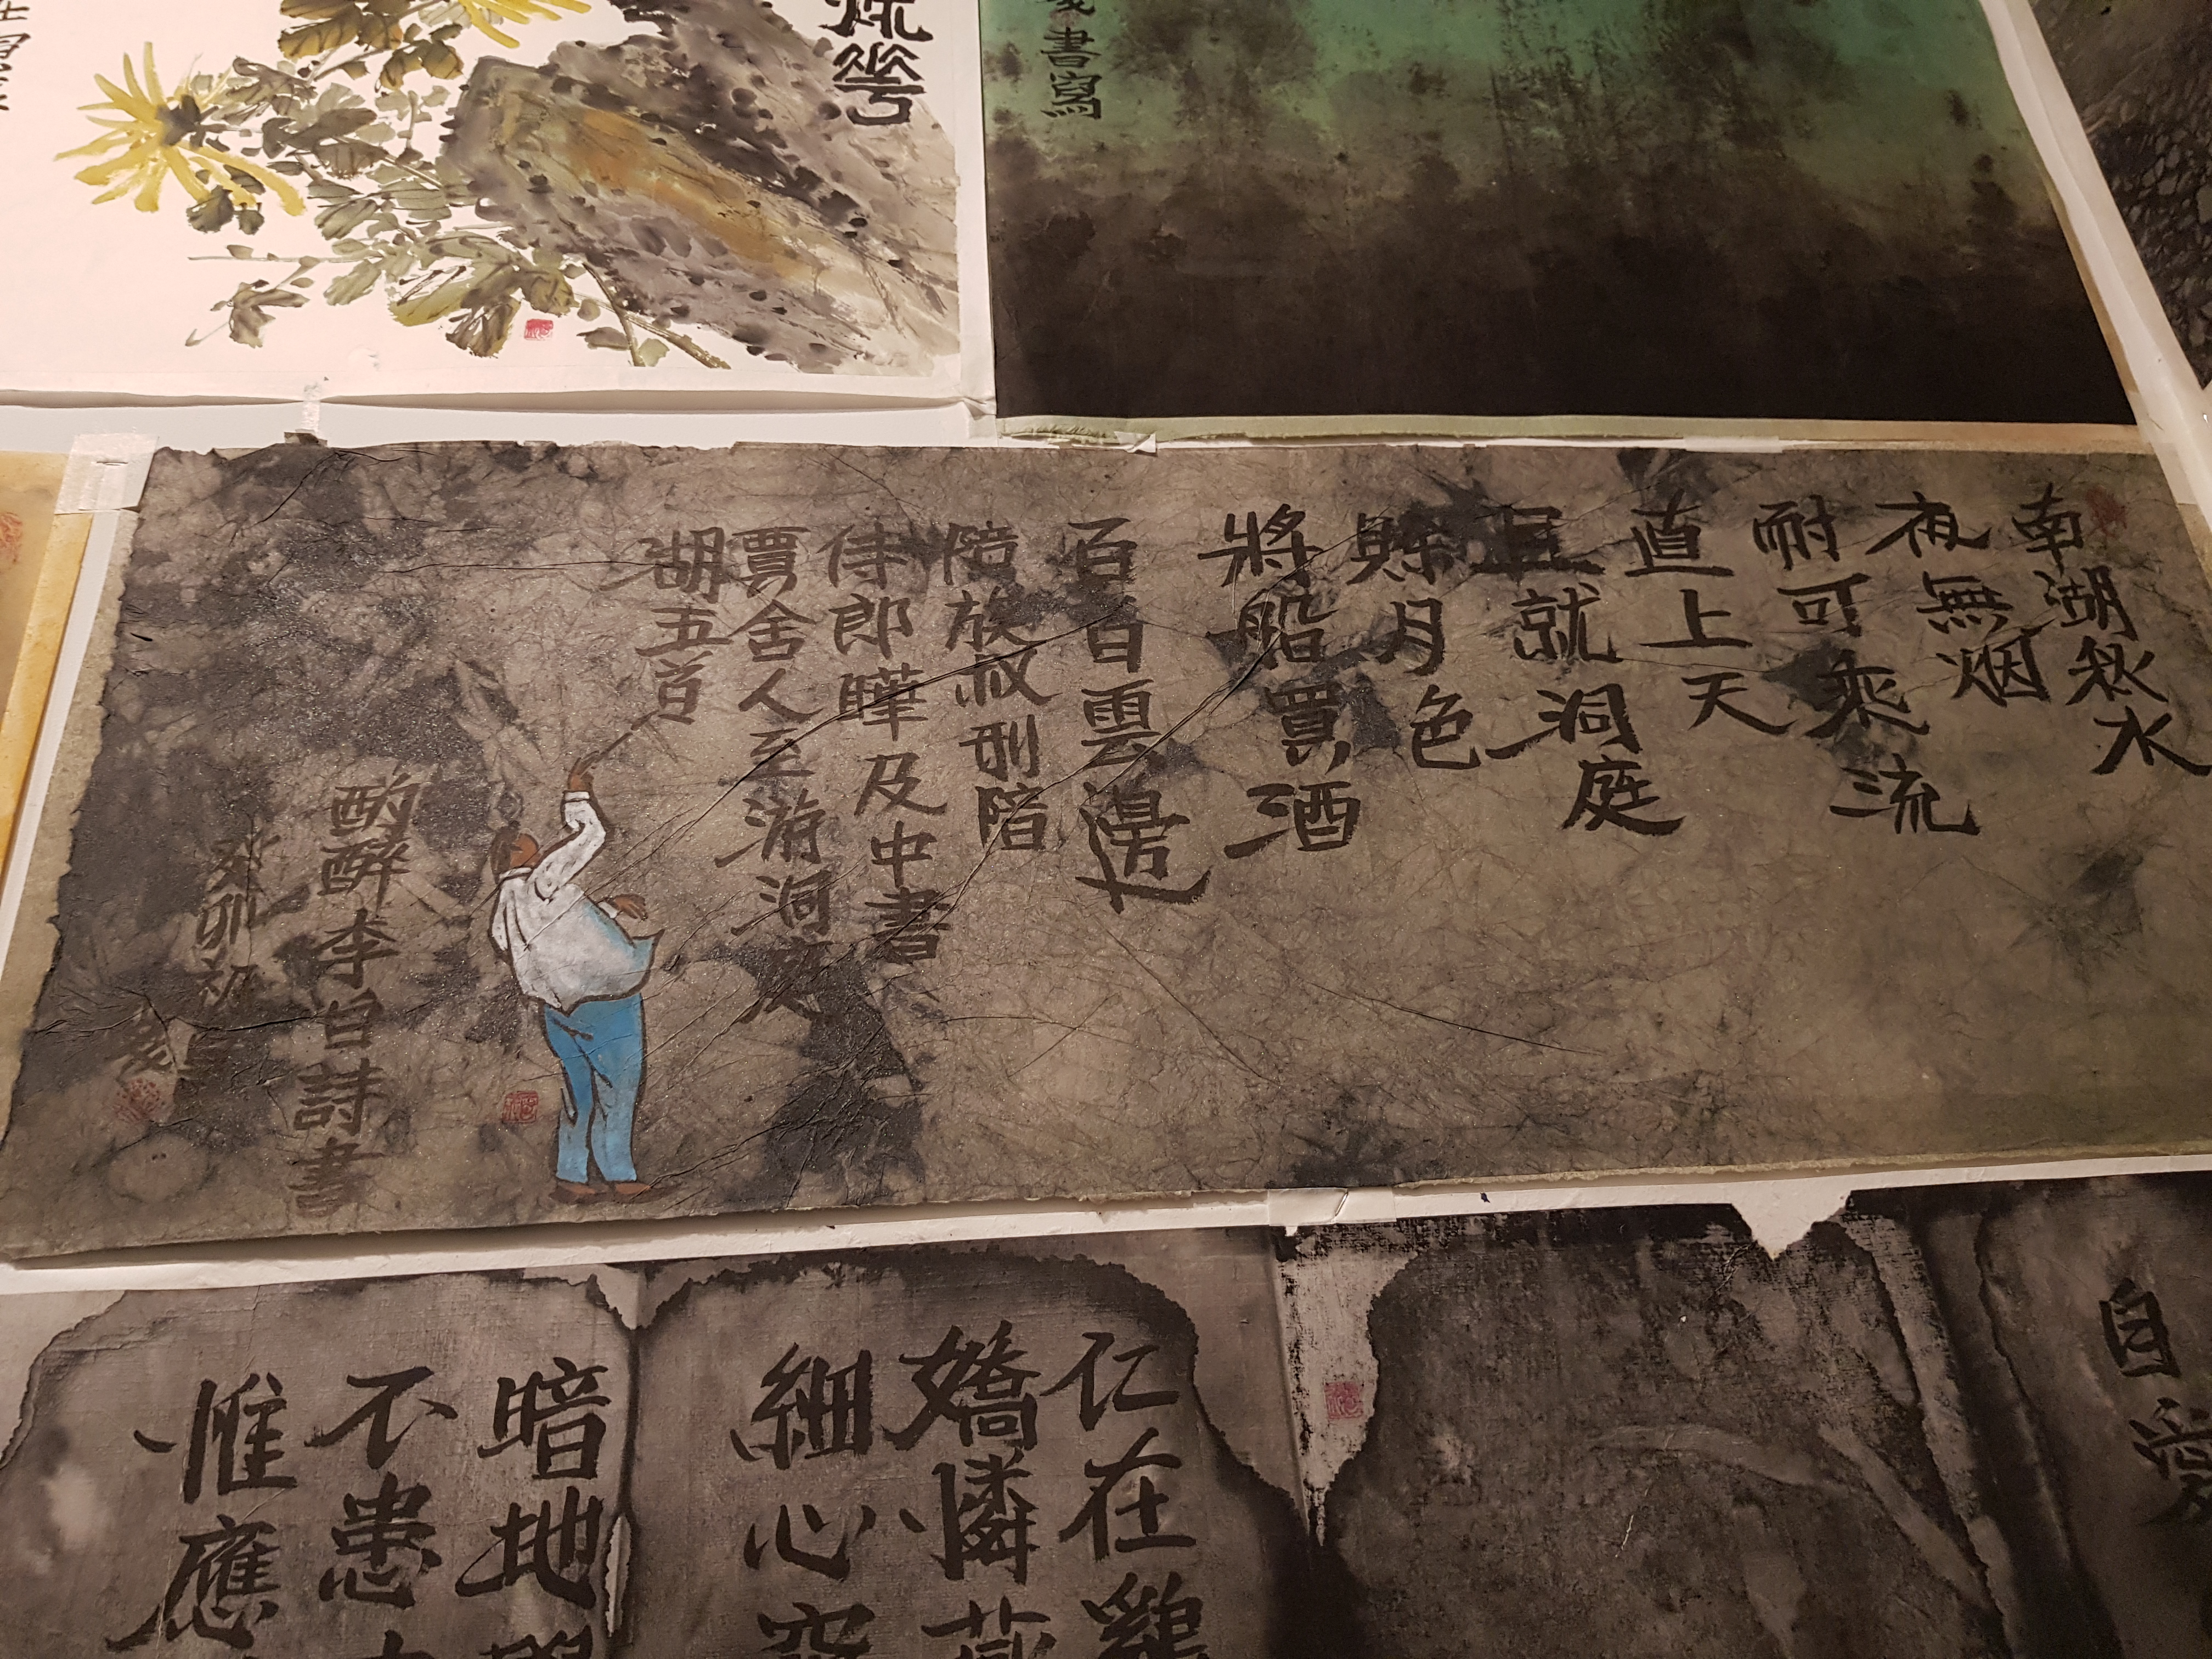 華
書寫
南湖秋水
夜無烟
耐可乘流
直上天
且就洞庭
賒月色
將船買酒
百白雲邊
陪族叔刑陪
侍郎曄及中書
賈舍人至游洞庭
湖五首
酌醉李白詩書
癸卯初夏
自愛
仁在雞
嬌憐燕
細心
暗地
不患
惟應